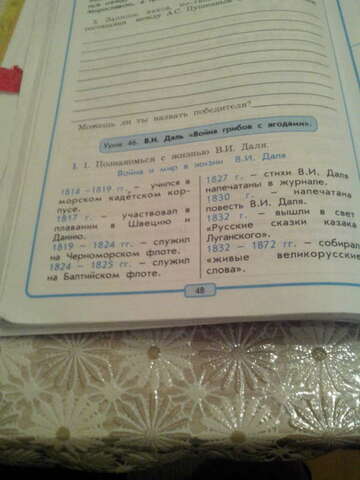 3. Запиши,
между А.С. Пушкиным
Можешь ли ты назвать победителя?
Урок 46. В.И. Даль «Война грибов с ягодами».
1. 1. Познакомься с жизнью В.И. Даля.
Война и мир в жизни В.И. Даля
1814 –1819 гг. – учился в
морском кадетском кор-
пусе.
1817 г. – участвовал в
плавании в Швецию и
Данию.
1819 – 1824 гг. – служил
на Черноморском флоте.
1824 – 1825 гг. – служил
на Балтийском флоте.
1827 г. – стихи В.И. Даля
напечатаны в журнале.
1830 г. – напечатана
повесть В.И. Даля.
1832 г. – вышли в свет
«Русские сказки казака
Луганского».
1832 – 1872 гг. – собирал
«живые великорусские
слова».
48